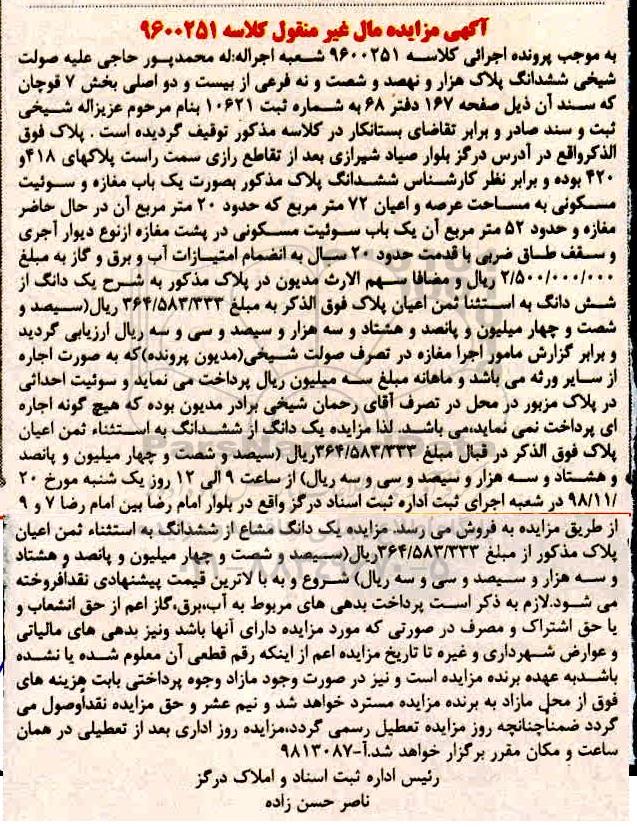 آگهی مزایده مال غیر منقول کلاسه ۹۶۰۰۲۵۱
به موجب پرونده اجرائی کلاسه ۹۶۰۰۲۵۱ شعبه اجراله:له محمدپور حاجی علیه صولت
شیخی ششدانگ پلاک هزار و نهصد و شصت و نه فرعی از بیست و دو اصلی بخش ۷ قوچان
که سند آن ذیل صفحه ۱۶۷ دفتر ۶۸ به شماره ثبت ۱۰۶۲۱ بنام مرحوم عزیزاله شیخی
ثبت و سند صادر و برابر تقاضای بستانکار در کلاسه مذکور توقیف گردیده است . پلاک فوق
الذکرواقع در آدرس درگز بلوار صیاد شیرازی بعد از تقاطع رازی سمت راست پلاکهای ۴۱۸و
۴۲۰ بوده و برابر نظر کارشناس ششدانگ پلاک مذکور بصورت یک باب مغازه و سوئیت
مسکونی به مساحت عرصه و اعیان ۷۲ متر مربع که حدود ۲۰ متر مربع آن در حال حاضر
مغازه و حدود ۵۲ متر مربع آن یک باب سوئیت مسکونی در پشت مغازه ازنوع دیوار آجری
و سقف طاق ضربی با قدمت حدود ۲۰ سال به انضمام امتیازات آب و برق و گاز به مبلغ
۲/۵۰۰/۰۰۰/۰۰۰ ریال و مضافا سهم الارث مدیون در پلاک مذکور به شرح یک دانگ از
شش دانگ به استثنا ثمن اعیان پلاک فوق الذکر به مبلغ ۳۶۴/۵۸۳/۳۳۳ ریال(سیصد و
شصت و چهار میلیون و پانصد و هشتاد و سه هزار و سیصد و سی و سه ریال ارزیابی گردید
و برابر گزارش مامور اجرا مغازه در تصرف صولت شیخی(مدیون پرونده)که به صورت اجاره
از سایر ورثه می باشد و ماهانه مبلغ سه میلیون ریال پرداخت می نماید و سوئیت احداثی
در پلاک مزبور در محل در تصرف آقای رحمان شیخی برادر مدیون بوده که هیچ گونه اجاره
ای پرداخت نمی نماید،می باشد. لذا مزایده یک دانگ از ششدانگ به استثناء ثمن اعیان
پلاک فوق الذکر در قبال مبلغ ۳۶۴/۵۸۳/۳۳۳ریال (سیصد و شصت و چهار میلیون و پانصد
و هشتاد و سه هزار و سیصد و سی و سه ریال) از ساعت ۹ الی ۱۲ روز یک شنبه مورخ ۲۰
/۹۸/۱۱ در شعبه اجرای ثبت اداره ثبت اسناد درگز واقع در بلوار امام رضا بین امام رضا ۷ و ۹
از طریق مزایده به فروش می رسد. مزایده یک دانگ مشاع از ششدانگ به استثناء ثمن اعیان
پلاک مذکور از مبلغ ۳۶۴/۵۸۳/۳۳۳ریال(سیصد و شصت و چهار میلیون و پانصد و هشتاد
و سه هزار و سیصد و سی و سه ریال) شروع و به با لاترین قیمت پیشنهادی نقدأفروخته
می شود.لازم به ذکر است پرداخت بدهی های مربوط به آب،برق،گاز اعم از حق انشعاب و
یا حق اشتراک و مصرف در صورتی که مورد مزایده دارای آنها باشد ونیز بدهی های مالیاتی
و عوارض شهرداری و غیره تا تاریخ مزایده اعم از اینکه رقم قطعی آن معلوم شده یا نشده
باشدبه عهده برنده مزایده است و نیز در صورت وجود مازاد وجوه پرداختی بابت هزینه های
فوق از محل مازاد به برنده مزایده مسترد خواهد شد و نیم عشر و حق مزایده نقدأوصول می
گردد ضمنأچنانچه روز مزایده تعطیل رسمی گردد،مزایده روز اداری بعد از تعطیلی در همان
ساعت و مکان مقرر برگزار خواهد شد.آ-۹۸۱۳۰۸۷
رئیس اداره ثبت اسناد و املاک درگز
ناصر حسن زاده